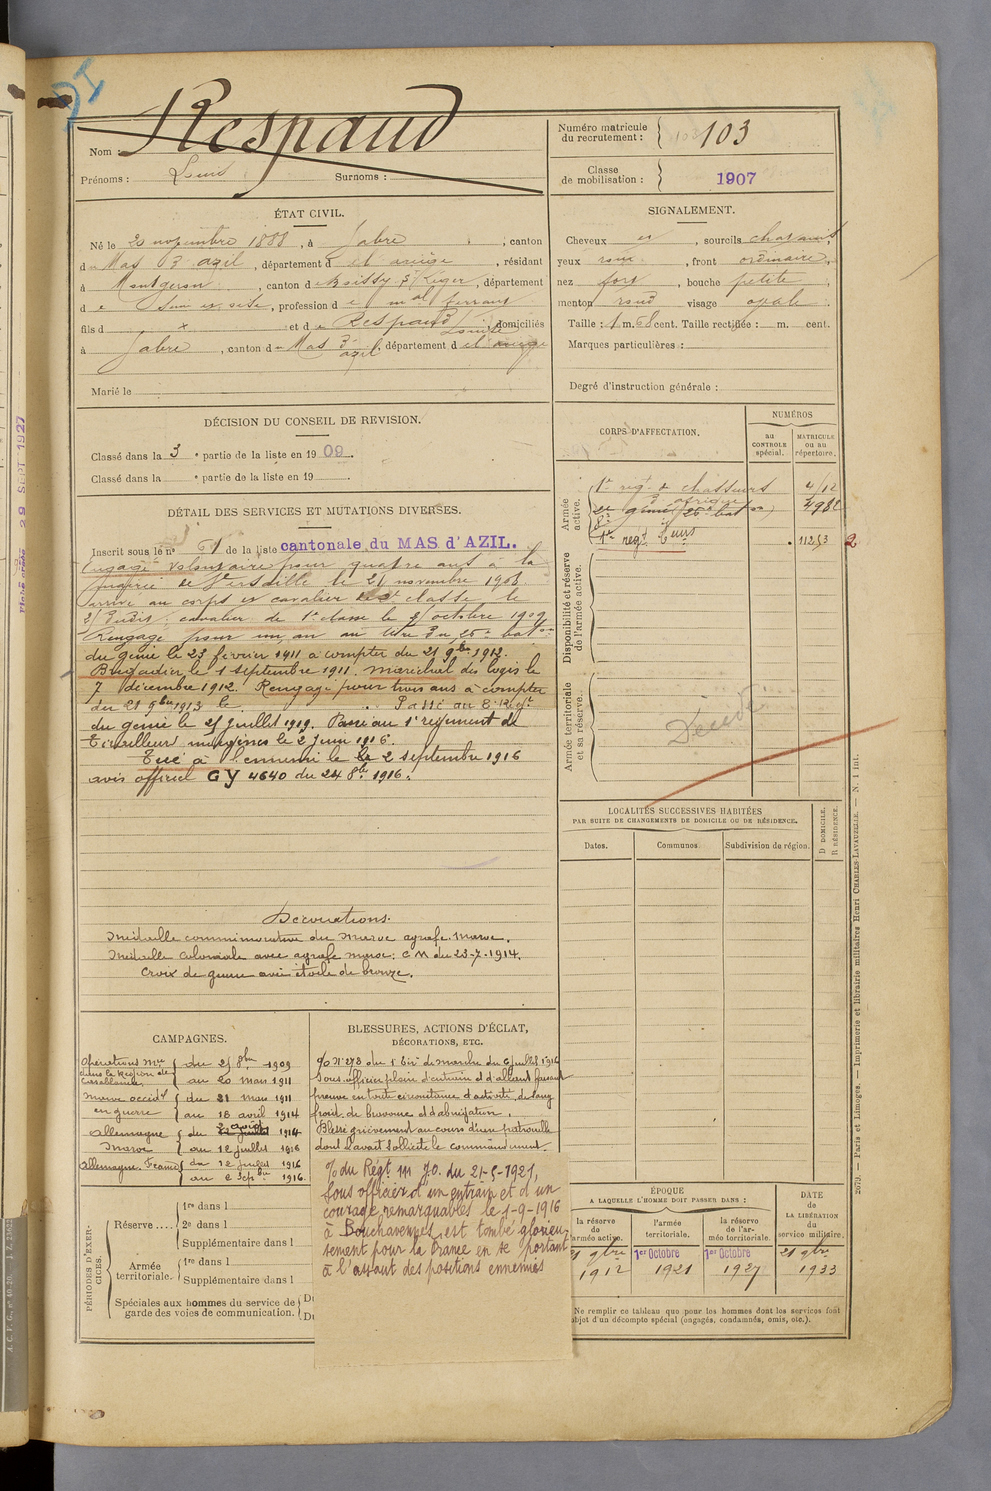 Respaud
Nom :
Prénoms : Louis Surnoms :
Numéro matricule
du recrutement : 103
Classe
de mobilisation : 1907
ÉTAT CIVIL.
Né le 20 novembre 1888, à Sabre, canton
du Mas d'azil, département d el ariège, résidant
à Montgeron, canton de Boissy St Léger, département
de Seine et oise, profession de mal ferrant
fils d x et de Respaud Louise, domiciliés
à Sabre, canton d Mas d'azil, département d el ariège
Marié le
SIGNALEMENT.
Cheveux et, sourcils chatains,
yeux roux, front ordinaire,
nez fort, bouche petite
menton rond visage ovale
Taille : 1 m. 68 cent. Taille rectifiée : m. cent.
Marques particulières :
Degré d'instruction générale :
DÉCISION DU CONSEIL DE REVISION.
Classé dans la 3e partie de la liste en 1909.
Classé dans la e partie de la liste en 19
CORPS D'AFFECTATION.
NUMÉROS
au
CONTROLE
spécial.
MATRICULE
ou au
répertoire.
Armée
active.
1er regt de chasseurs d'afrique 4/12
2e génie (26e baton) 4982
8e
1er regt Tirurs 11253 2
Disponibilité et réserve
de l'armée active.
Armée territoriale
et sa réserve.
Décédé
DÉTAIL DES SERVICES ET MUTATIONS DIVERSES.
Inscrit sous le no 61 de la liste cantonale du MAS d'AZIL.
Engagé volontaire pour quatre ans à la
mairie de Versaille le 21 novembre 1908.
arrivé au corps et cavalier de 2e classe le
2/ dudit. cavalier de 1e classe le 2/ octobre 1909
Rengagé pour un an au titre du 26e baton
du génie le 23 février 1911 à compter du 21 9bre 1912.
Brigadier le 1 septembre 1911. maréchal des logis le
7 décembre 1912. Rengagé pour trois ans à compter
du 21 9bre 1913 le . Passé au 8e Régt
du génie le 25 juillet 1919. Passé au 1e régiment de
Tirailleurs marocains le 2 juin 1916.
Tué à l'ennemi le 2 septembre 1916
avis officiel GY 4640 du 24 8bre 1916.
Décorations.
Médaille commémorative du Maroc agrafe Maroc.
Médaille coloniale avec agrafe maroc. C M du 23-7-1914.
Croix de guerre avec étoile de bronze.
LOCALITÉS SUCCESSIVES HABITÉES
PAR SUITE DE CHANGEMENTS DE DOMICILE OU DE RÉSIDENCE.
Dates.
Communes.
Subdivision de région.
D DOMICILE.
R RÉSIDENCE.
CAMPAGNES.
Opérations mres dans la Région de Casablanca, du 25 8bre 1909
au 20 mars 1911
Maroc occidl du 21 mars 1911
en guerre au 18 avril 1914
allemagne du 2 août 1914
Maroc au 12 juillet 1916
allemagne. France du 12 juillet 1916
au 2 sepbre 1916.
BLESSURES, ACTIONS D'ÉCLAT,
DÉCORATIONS, ETC.
% No 273 du 1 Tirr de marche du 6 juillet 1916
Sous officier plein d'entrain et d'allant faisant
preuve en toute circonstance d'activité, de sang
froid, de bravoure et d'abnégation.
Blessé grièvement au cours d'une patrouille
dont il avait sollicité le commandement.
% du Régt in Jo. du 21-5-1921,
Sous officier d'un entrain et d'un
courage remarquables le 1-9-1916
à Bouchavesnes, est tombé glorieu-
sement pour la France en se portant
à l'assaut des positions ennemies
PÉRIODES D'EXER-
CICES.
Réserve.... 1re dans l
2e dans l
Supplémentaire dans l
Armée
territoriale. 1re dans l
Supplémentaire dans l
Spéciales aux hommes du service de
garde des voies de communication.
ÉPOQUE
A LAQUELLE L'HOMME DOIT PASSER DANS :
la réserve
de
l'armée active.
l'armée
territoriale.
la réserve
de l'ar-
mée territoriale.
DATE
de
LA LIBÉRATION
du
service militaire.
21 9bre 1912
1er Octobre 1921
1er Octobre 1927
21 9bre 1933
Ne remplir ce tableau que pour les hommes dont les services font
objet d'un décompte spécial (engagés, condamnés, omis, etc.).
2079. — Paris et Limoges. — Imprimerie et librairie militaires Henri CHARLES-LAVAUZELLE. — N. 1 int.
29 SEPT 1927